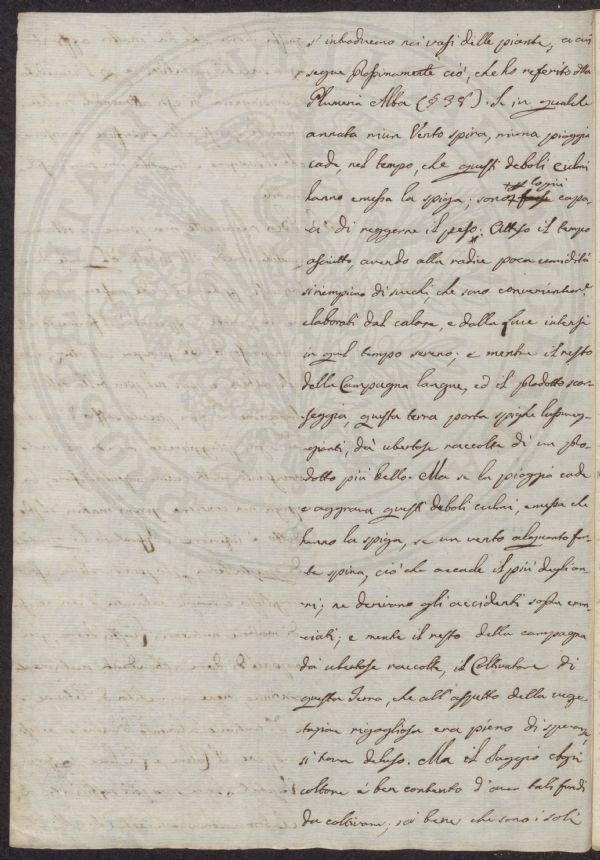 s'introducono nei vasi delle piante, a cui
segue prossimamente ciò, che ho riferito della
Plumeria Alba (§ 38). Se in qualche
annata niun Vento spira, niuna pioggia
cade, nel tempo, che questi deboli culmi
hanno emessa la spiga; sono capa-
ci di reggerne il peso. Atteso il tempo
asciutto, avendo alla radice poca umidità
si riempiono di succhi, che sono convenientem.e
elaborati dal calore, e dalla luce intensi
in quel tempo sereno; e mentre il resto
della Campagna langue, ed il prodotto scar-
seggia, questa terra porta spighe lussureg-
gianti, dà ubertose raccolte di un pro-
dotto più bello. Ma se la pioggia cade
e aggrava questi deboli culmi, emessa che
hanno la spiga, se un vento alquanto for-
te spira, ciò che accade il più degli an-
ni; ne derivano gli accidenti sopra enun-
ciati; e mentre il resto della campagna
dà ubertose raccolte, il Coltivatore di
questa Terra, che all'aspetto della vege-
tazione rigogliosa era pieno di speranze,
si trova deluso. Ma il Saggio Agri-
coltore è ben contento d'aver tali fondi
da coltivare; sa bene che sono i soli